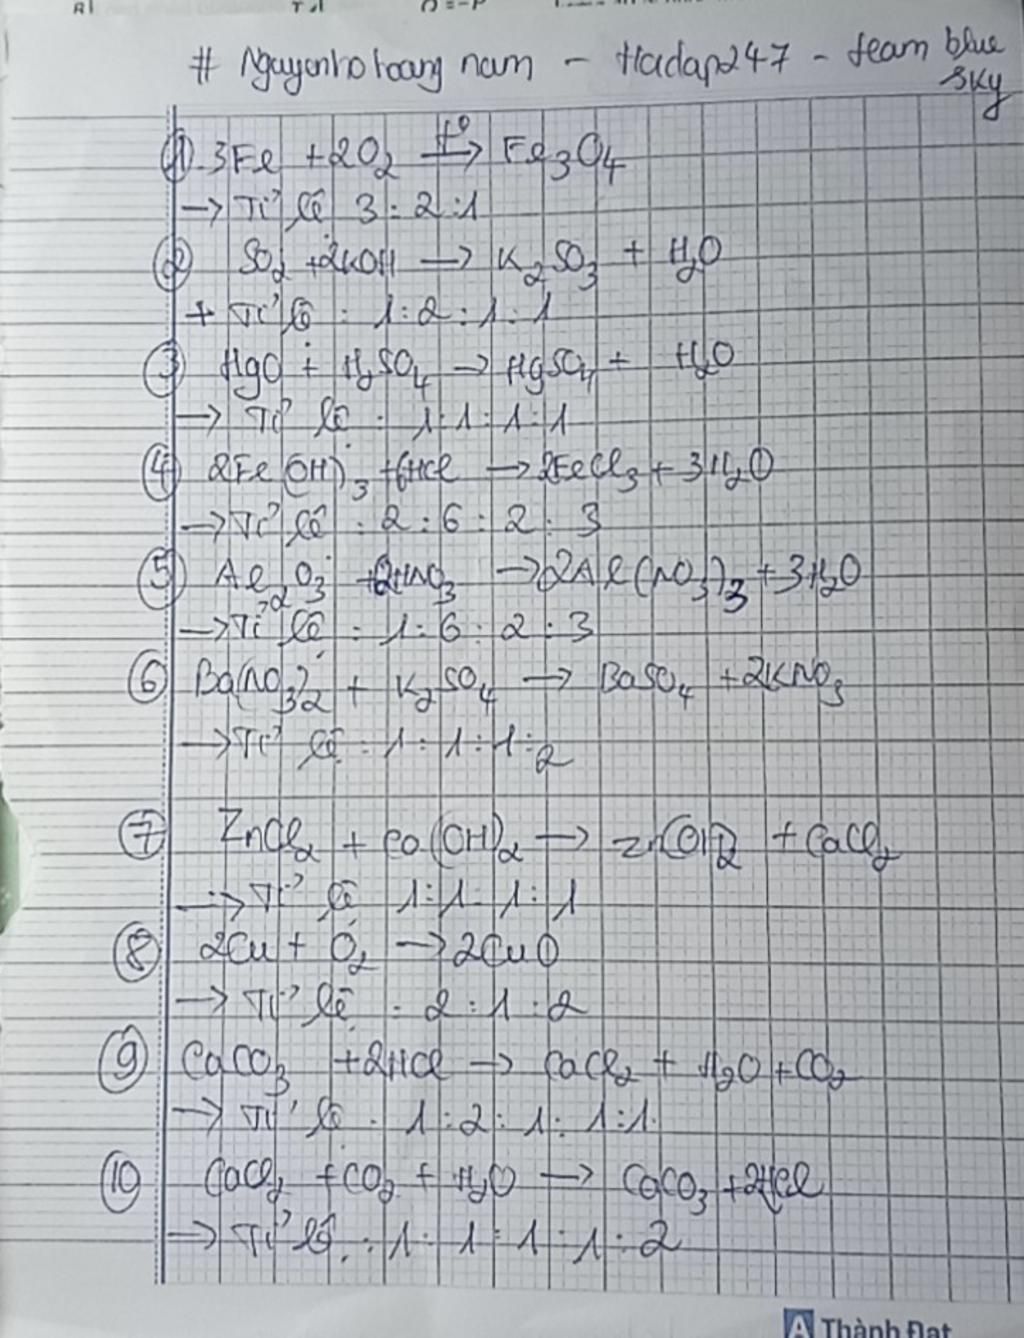 # Nguyenhohoang nam - Hadap247 - team blue sky
① 3Fe + 2O₂ —t⁰→ Fe₃O₄
→ Tỉ lệ 3 : 2 : 1
② SO₂ + 2KOH → K₂SO₃ + H₂O
+ Tỉ lệ : 1 : 2 : 1 : 1
③ HgO + H₂SO₄ → HgSO₄ + H₂O
→ Tỉ lệ : 1 : 1 : 1 : 1
④ 2Fe(OH)₃ + 6HCl → 2FeCl₃ + 3H₂O
→ Tỉ lệ : 2 : 6 : 2 : 3
⑤ Al₂O₃ + 2HNO₃ → 2Al(NO₃)₃ + 3H₂O
→ Tỉ lệ : 1 : 6 : 2 : 3
⑥ Ba(NO₃)₂ + K₂SO₄ → BaSO₄ + 2KNO₃
→ Tỉ lệ : 1 : 1 : 1 : 2
⑦ ZnCl₂ + Ca(OH)₂ → Zn(OH)₂ + CaCl₂
→ Tỉ lệ 1 : 1 : 1 : 1
⑧ 2Cu + O₂ → 2CuO
→ Tỉ lệ : 2 : 1 : 2
⑨ CaCO₃ + 2HCl → CaCl₂ + H₂O + CO₂
→ Tỉ lệ : 1 : 2 : 1 : 1 : 1.
⑩ CaCl₂ + CO₂ + H₂O → CaCO₃ + 2HCl
→ Tỉ lệ : 1 : 1 : 1 : 1 : 2
A Thành Đạt